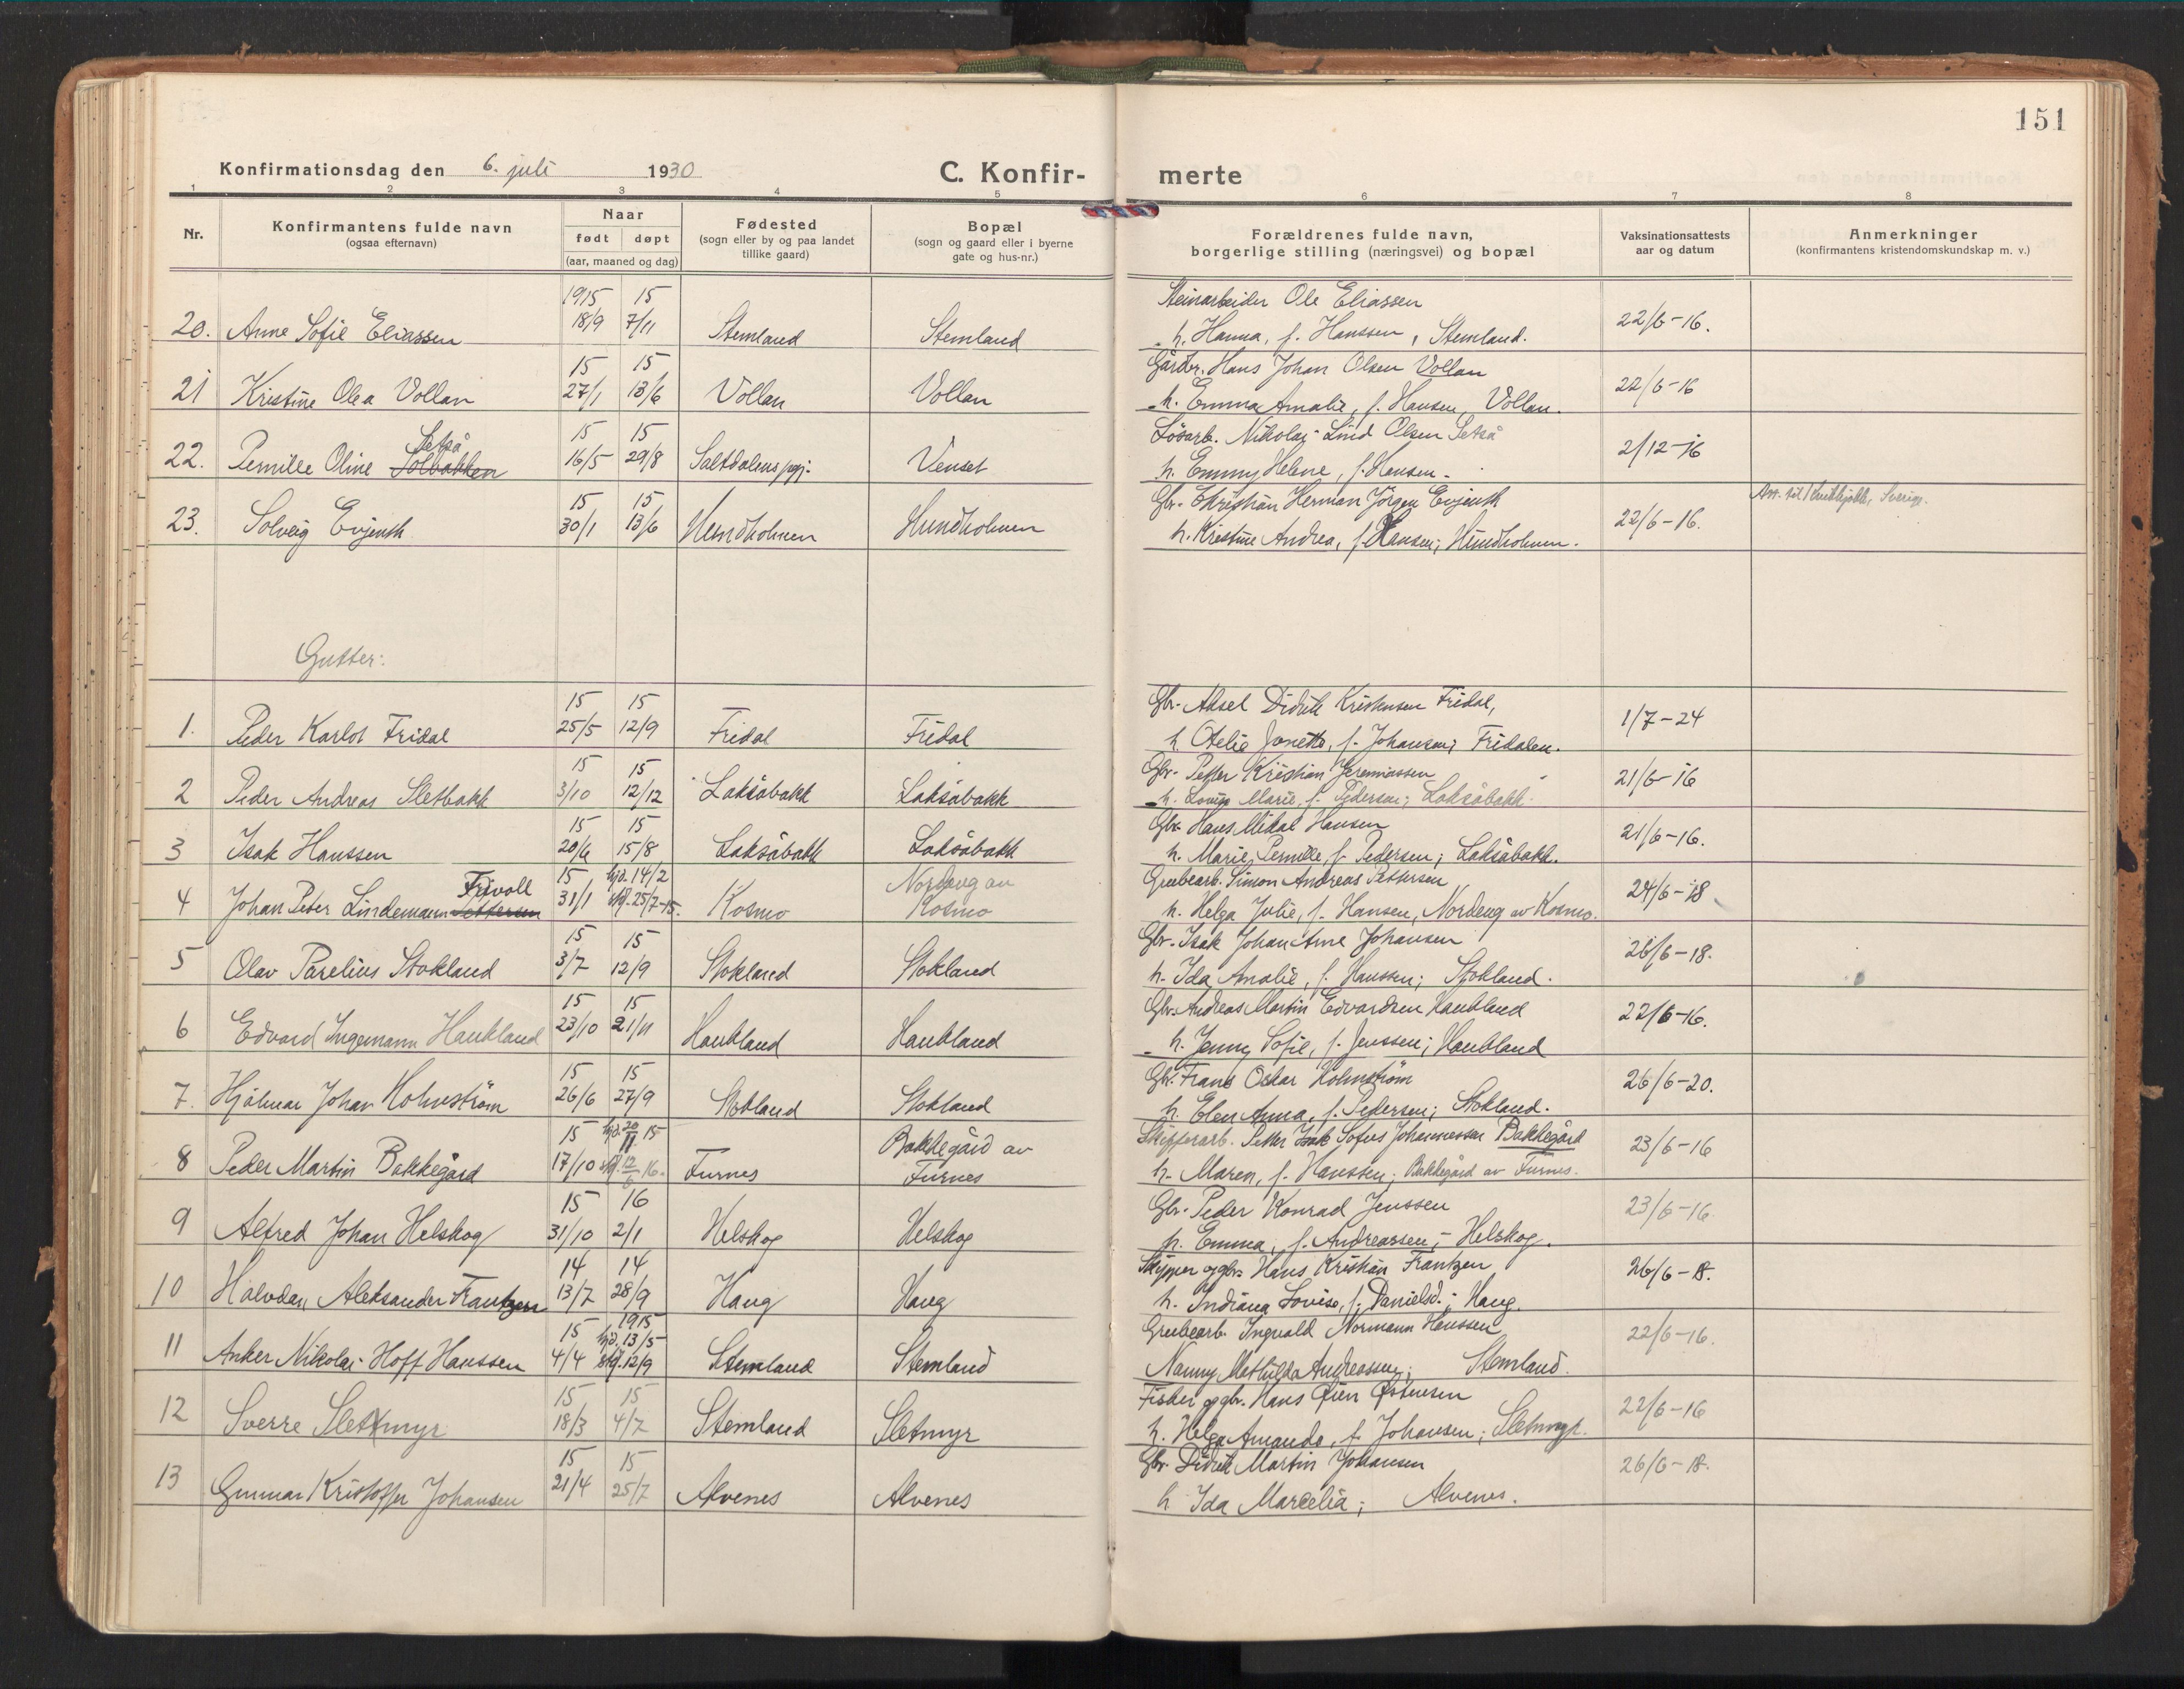 151
Konfirmationsdag den 6. juli 1930
C. Konfir-merte
1 2 3 4 5 6 7 8
Nr.
Konfirmantens fulde navn
(ogsaa efternavn)
Naar
født døpt
(aar, maaned og dag)
Fødested
(sogn eller by og paa landet
tillike gaard)
Bopæl
(sogn og gaard eller i byerne
gate og hus-nr.)
Forældrenes fulde navn,
borgerlige stilling (næringsvei) og bopæl
Vaksinationsattests
aar og datum
Anmerkninger
(konfirmantens kristendomskundskap m. v.)
1915 15 Steinarbeider Ole Eliassen
20. Anne Sofie Eliassen 18/9 7/11 Stemland Stemland h. Hanna, f. Hanssen, Stemland. 22/6-16.
15 15 Gårdbr. Hans Johan Olsen Vollan
21 Kristine Olea Vollan 27/1 13/6 Vollan Vollan h. Emma Amalie, f. Hansen, Vollan. 22/6-16
Setså 15 15 Løsarb. Nikolai Lind Olsen Setså
22. Pernille Oline Solbakken 16/5 29/8 Saltdalens pgj. Venset h. Emmy Helene, f. Hansen. 2/12-16
15 15 Gbr. Christian Herman Jörgen Evjenth
23. Solveig Evjenth 30/1 13/6 Hundholmen Hundholmen h. Kristine Andrea, f. Hansen; Hundholmen. 22/6-16. Att. til Sverige.
Gutter:
15 15 Gbr. Aksel Didrik Kristensen Fridal,
1. Peder Karlot Fridal 25/5 12/9 Fridal Fridal h. Otelie Jonette, f. Johansen; Fridalen. 1/7-24
15 15 Gbr. Petter Kristian Jeremiassen
2 Peder Andreas Sletbakk 3/10 12/12 Laksåbakk Laksåbakk h. Lovise Marie, f. Pedersen; Laksåbakk. 21/6-16
15 15 Gbr. Hans Mikal Hansen
3 Isak Hanssen 20/6 15/8 Laksåbakk Laksåbakk h. Marie Pernille, f. Pedersen; Laksåbakk. 21/6-16.
Frivoll 15 hjd. 14/2 Nordeng av Grubearb. Simon Andreas Pettersen
4 Johan Peter Lindemann Pettersen 31/1 stf. 25/7-15. Kosmo Kosmo h. Helga Julie, f. Hansen, Nordeng av Kosmo. 24/6-18
15 15 Gbr. Isak Johan Arne Johansen
5 Olav Parelius Stokland 3/7 12/9 Stokland Stokland h. Ida Amalie, f. Hanssen; Stokland. 26/6-18.
15 15 Gbr. Andreas Martin Edvardsen Haukland
6 Edvard Ingemann Haukland 23/10 21/11 Haukland Haukland h. Jenny Sofie, f. Jenssen; Haukland 22/6-16.
15 15 Gbr. Frans Oskar Holmström
7. Hjalmar Johan Holmström 26/6 27/9 Stokland Stokland h. Elen Anna, f. Pedersen; Stokland. 26/6-20.
15 hjd. 20/11 15 Bakkegård av Skifferarb. Petter Isak Sofus Johannessen Bakkegård
8 Peder Martin Bakkegård 17/10 stf. 12/3 16. Furnes Furnes h. Maren, f. Hanssen; Bakkegård av Furnes. 23/6-16
15 16 Gbr. Peder Konrad Jenssen
9 Alfred Johan Helskog 31/10 2/1 Helskog Helskog h. Emma, f. Andreassen; Helskog. 23/6-16
14 14 Skipper og gbr. Hans Kristian Frantzen
10 Halvdan Aleksander Frantzen 13/7 28/9 Haug Haug h. Indiana Lovise, f. Danielsd.; Haug. 26/6-18.
15 1915 hjd. 13/5 Grubearb. Ingvald Normann Hanssen
11 Anker Nikolai Hoff Hanssen 4/4 stf. 12/9 Stemland Stemland Nanny Mathilda Andreassen; Stemland. 22/6-16.
15 15 Fisker og gbr. Hans Øien Østensen
12 Sverre Sletmyr 18/3 4/7 Stemland Sletmyr h. Helga Amanda, f. Johansen; Sletmyr. 22/6-16
15 15 Gbr. Didrik Martin Johansen
13 Gunnar Kristoffer Johansen 21/4 25/7 Alvenes Alvenes h Ida Marcelia; Alvenes. 26/6-18.